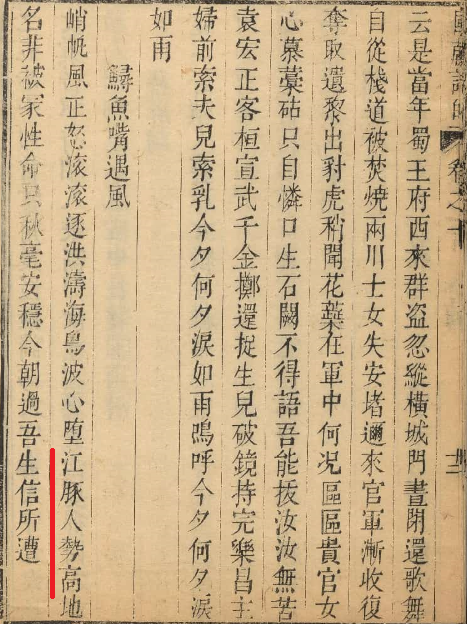 卷之十
云是當年蜀王府西來群盜忽縱橫城門晝閉還歌舞
自從棧道被焚燒兩川士女失安堵邇來官軍漸收復
奪取遺黎出豺虎稍聞花蘂在軍中何况區區貴官女
心慕藁砧只自憐口生石闕不得語吾能拔汝汝無苦
袁宏正客桓宣武千金擲還捉生兒破鏡持完樂昌主
婦前索夫兒索乳今夕何夕淚如雨嗚呼今夕何夕淚
如雨
鱘魚嘴遇風
峭帆風正怒滾滾逐洪濤海鳥波心墮江豚人勢高地
名非被家性命只秋毫安穩今朝過吾生信所遭